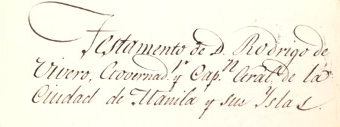 Testamento de D. Rodrigo de
Vivero, Governad.r y Cap.n Geral. de la
Ciudad de Manila y sus Yslas.